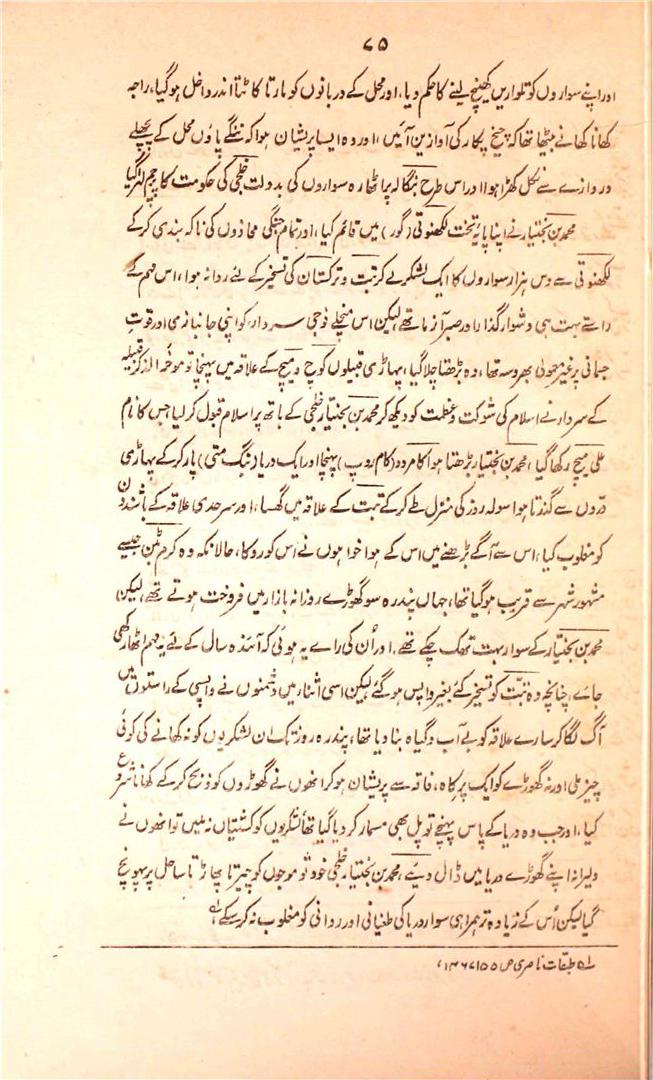 ۷۵
اور اپنے سواروں کو تلواریں کھینچ لینے کا حکم دیا، اور محل کے دربانوں کو مارتا کاٹتا اندر داخل ہوگیا، راجہ
کھانا کھانے بیٹھا تھا کہ چیخ پکار کی آوازیں آئیں، اور وہ ایسا پریشان ہوا کہ ننگے پاؤں محل کے پچھلے
دروازے سے نکل کھڑا ہوا اور اس طرح بنگالہ پر اٹھارہ سواروں کی بدولت خلجی کی حکومت کا پرچم لہرا گیا
محمد بن بختیار نے اپنا پایۂ تخت لکھنوتی (گور) میں قائم کیا، اور تمام جنگی محاذوں کی ناکہ بندی کر کے
لکھنوتی سے دس ہزار سواروں کا ایک لشکر لے کر تبت و ترکستان کی تسخیر کے لئے روانہ ہوا، اس مہم کے
راستے بہت ہی دشوار گذار اور صبر آزما تھے، لیکن اس منچلے فوجی سردار کو اپنی جانبازی اور قوت
جسمانی پر غیر معمولی بھروسہ تھا، وہ بڑھتا چلا گیا، پہاڑی قبیلوں کوچ و میچ کے علاقہ میں پہنچا تو موخر الذکر قبیلہ
کے سردار نے اسلام کی شوکت و عظمت کو دیکھ کر محمد بن بختیار خلجی کے ہاتھ پر اسلام قبول کرلیا جس کا نام
علی میچ رکھا گیا، محمد بن بختیار بڑھتا ہوا کامرود (کام روپ) پہنچا اور ایک دریا (بنگ متی) پار کر کے پہاڑی
دروں سے گذرتا ہوا سولہ روز کی منزل طے کر کے تبت کے علاقہ میں گھسا، اور سرحدی علاقہ کے باشندوں
کو مغلوب کیا، اس سے آگے بڑھنے میں اس کے ہوا خواہوں نے اس کو روکا، حالانکہ وہ کرم بٹن جیسے
مشہور شہر سے قریب ہوگیا تھا، جہاں پندرہ سو گھوڑے روزانہ بازار میں فروخت ہوتے تھے، لیکن
محمد بن بختیار کے سوار بہت تھک چکے تھے، اور اُن کی رائے یہ ہوئی کہ آئندہ سال کے لئے یہ مہم اٹھا رکھی
جائے، چنانچہ وہ تبت کو تسخیر کئے بغیر واپس ہوگئے، لیکن اسی اثنار میں دشمنوں نے واپسی کے راستوں میں
آگ لگا کر سارے علاقہ کو بے آب و گیاہ بنا دیا تھا، پندرہ روز تک ان لشکریوں کو نہ کھانے کی کوئی
چیز ملی اور نہ گھوڑے کو ایک پرکاہ، فاقہ سے پریشان ہوکر انھوں نے گھوڑوں کو ذبح کر کے کھانا شروع
کیا، اور جب وہ دریا کے پاس پہنچے تو پل بھی مسمار کر دیا گیا تھا، لشکریوں کو کشتیاں نہ ملیں تو انھوں نے
دلیرانہ اپنے گھوڑے دریا میں ڈال دیئے، محمد بن بختیار خلجی خود تو موجوں کو چیرتا پھاڑتا ساحل پر پہونچ
گیا لیکن اُس کے زیادہ تر ہمراہی سوار دریا کی طغیانی اور روانی کو مغلوب نہ کرسکے،
لہ طبقات ناصری ص